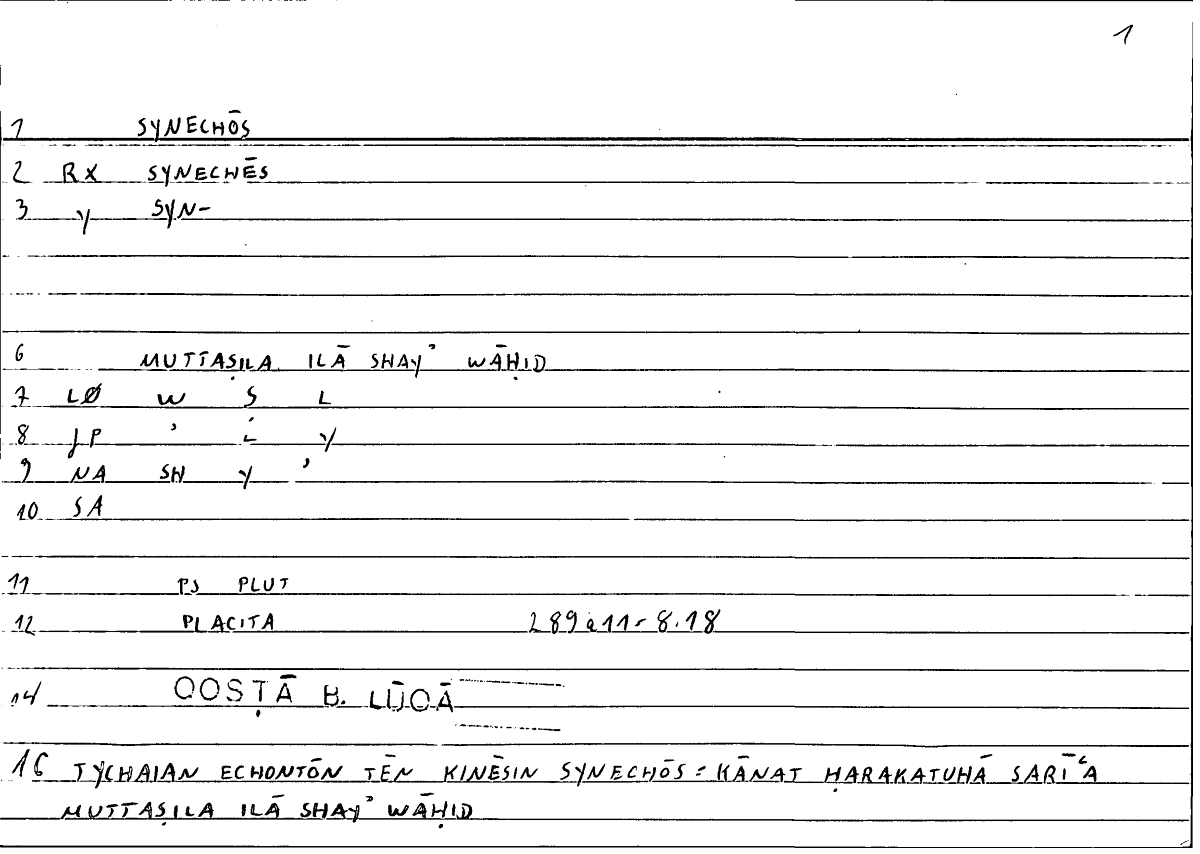 1
1 SYNECHŌS
2 RX SYNECHĒS
3 Y SYN-
6 MUTTAṢILA ILĀ SHAYʾ WĀḤID
7 LØ W Ṣ L
8 JP ʾ L Y
9 NA SH Y ʾ
10 SA
11 PS PLUT
12 PLACITA 289a11-8.18
14 QOSṬĀ B. LŪQĀ
16 TYCHAIAN ECHONTŌN TĒN KINĒSIN SYNECHŌS = KĀNAT ḤARAKATUHĀ SARĪʿA
MUTTAṢILA ILĀ SHAYʾ WĀḤID